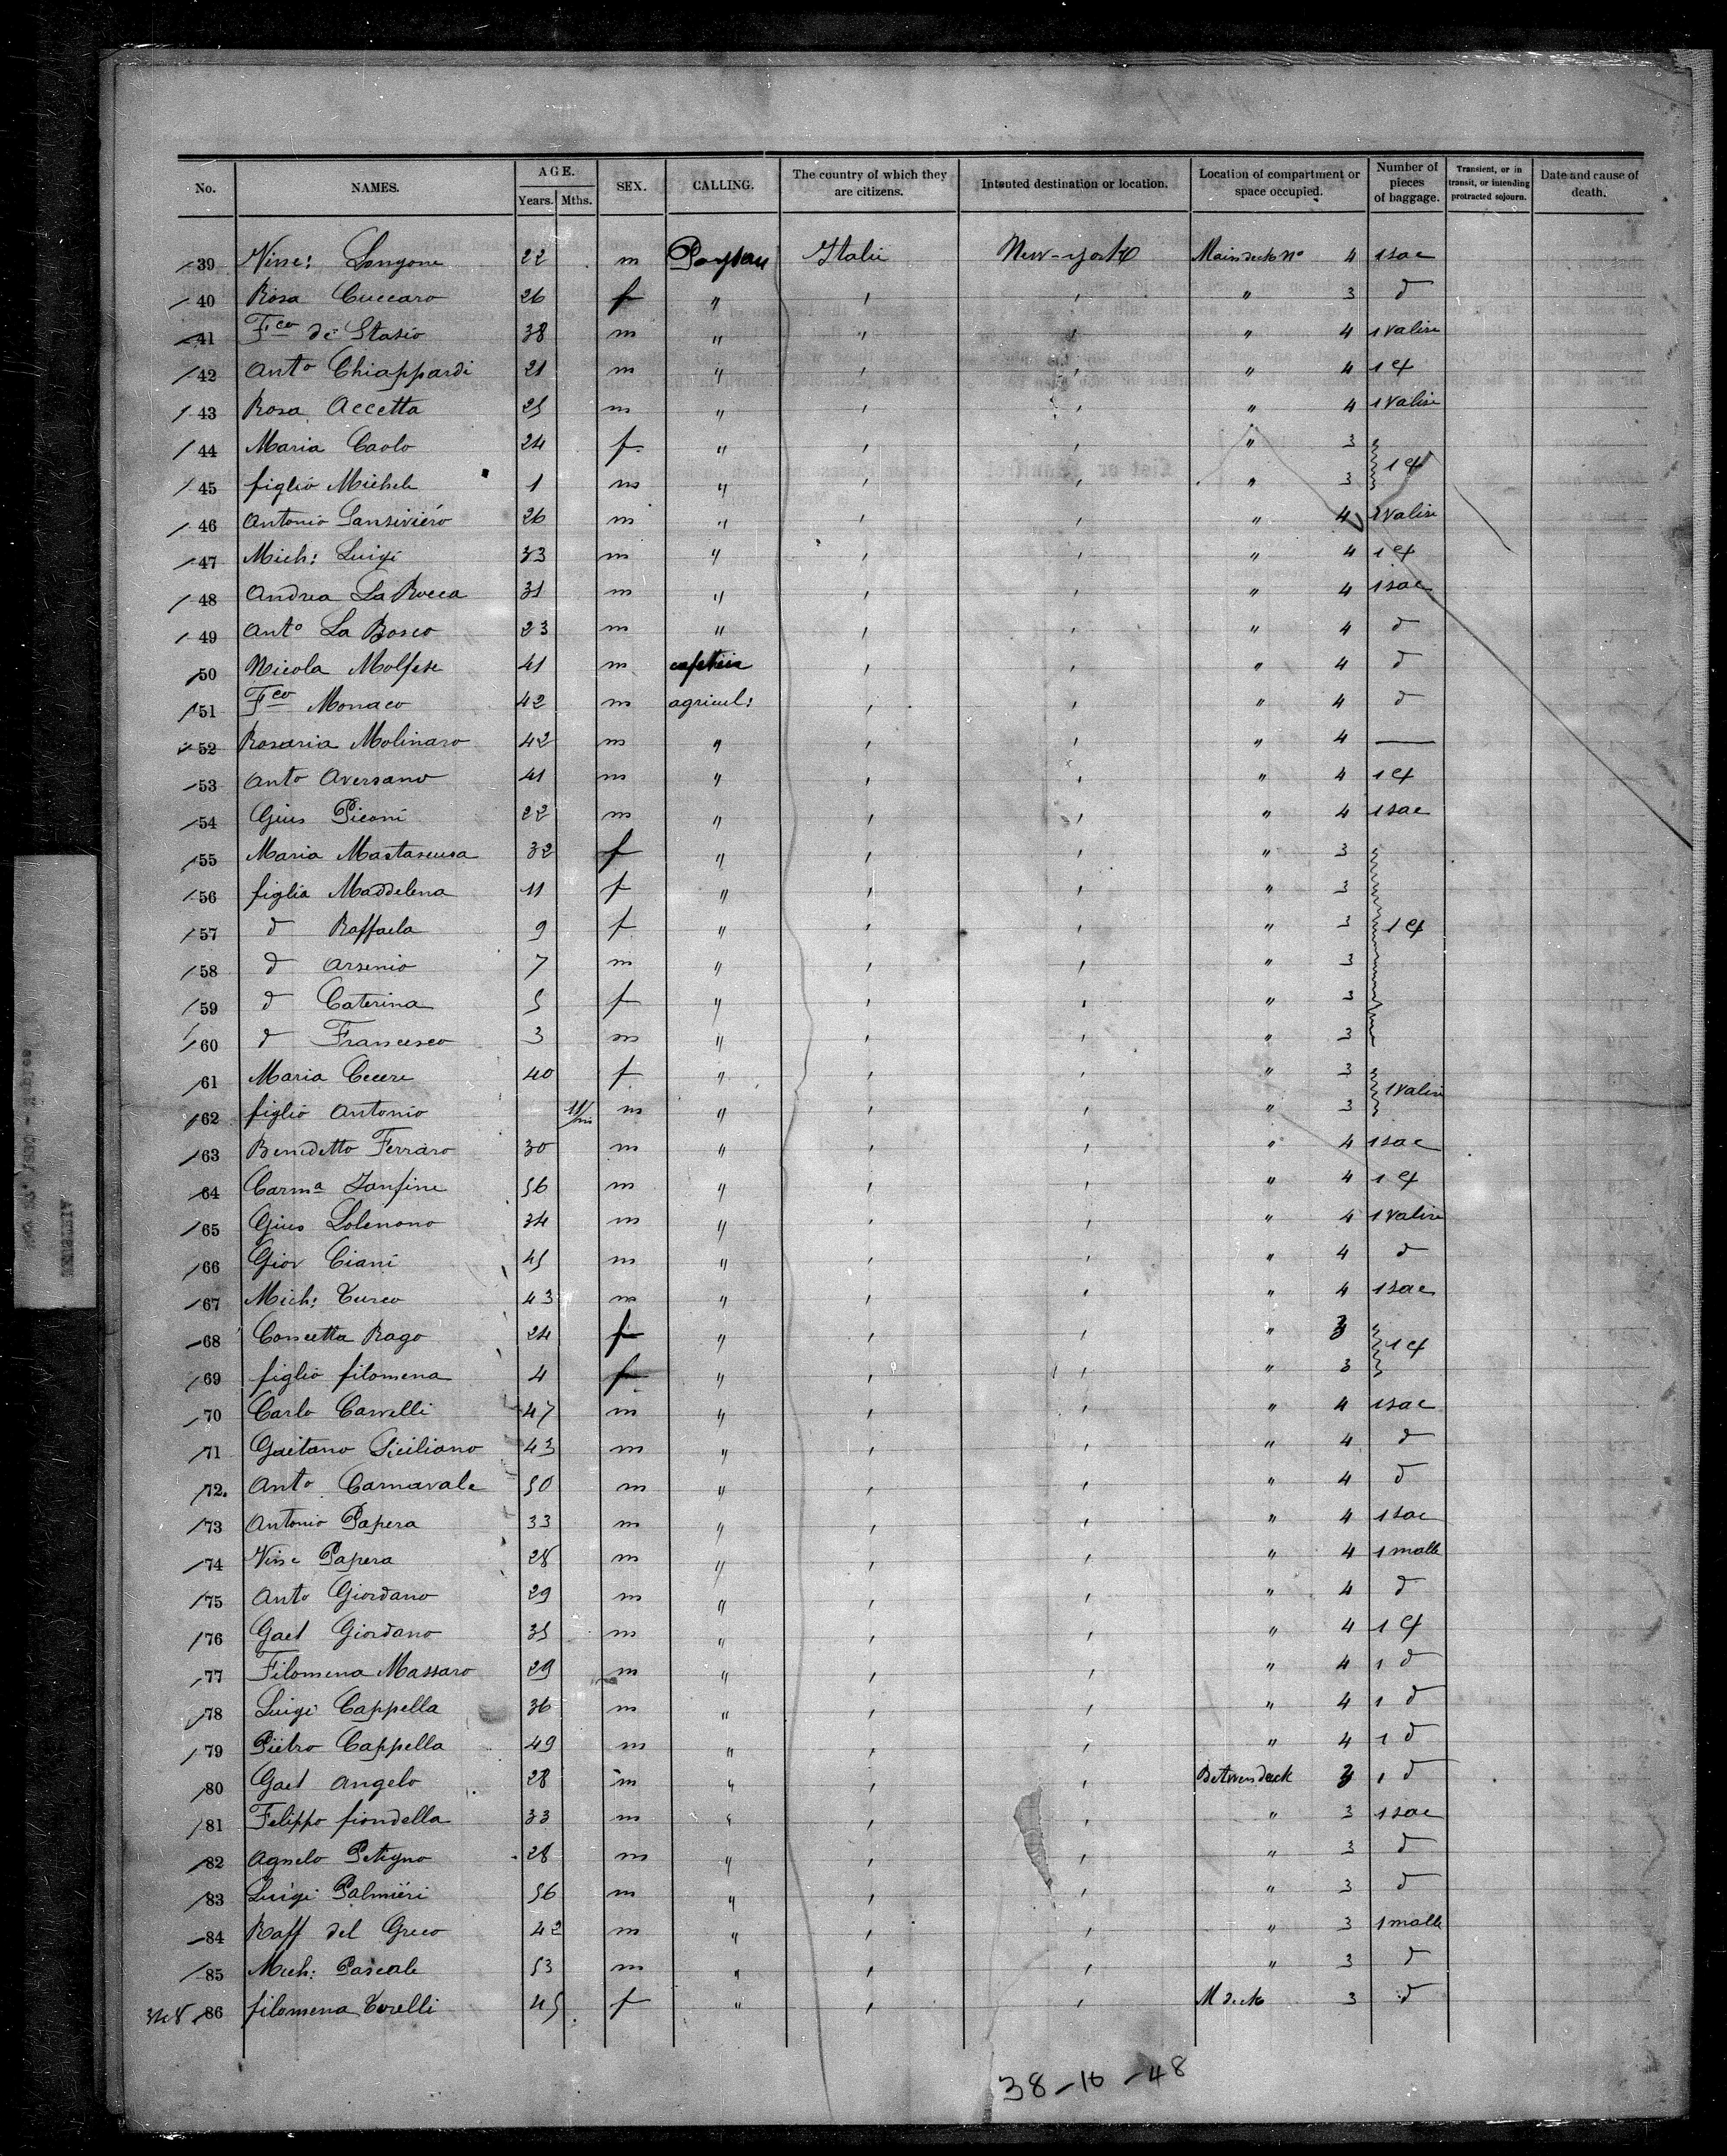 No. NAMES. AGE. Years. Mths. SEX. CALLING. The country of which they are citizens. Intented destination or location. Location of compartment or space occupied. Number of pieces of baggage. Transient, or in transit, or intending protracted sojourn. Date and cause of death.
39 Vinc: Langone 22 m Paysan Italie New-york Maindeck no 4 1 sac
40 Rosa Cuccaro 26 f " , , " 3 d
41 Fco di Stasio 38 m " " , " 4 1 valise
42 Anto Chiappardi 21 m " , , " 4 1 cf
43 Rosa Accetta 25 m " , , " 4 1 valise
44 Maria Caolo 24 f " , , " 3
45 figlio Michele 1 m " , , " 3 1 cf
46 Antonio Sansiviero 26 m " , , " 4 1 valise
47 Mich: Luigi 33 m " , , " 4 1 cf
48 Andrea La Rocca 31 m " , , " 4 1 sac
49 Anto La Bosco 23 m " , , " 4 d
50 Nicola Molfese 41 m , , " 4 d
51 Fco Monaco 42 m agricul: , , " 4 d
52 Rosaria Molinaro 42 m " , , " 4 —
53 Anto Aversano 41 m " , , " 4 1 cf
54 Gius Piconi 22 m " , , " 4 1 sac
55 Maria Mastascusa 32 f " , , " 3
56 figlia Maddelena 11 f " , , " 3
57 d Raffaela 9 f " , , " 3 1 cf
58 d Arsenio 7 m " , , " 3
59 d Caterina 5 f " , , " 3
60 d Francesco 3 m " , , " 3
61 Maria Cecere 40 f " , , " 3
62 figlio Antonio 11/ms m " , , " 3 1 valise
63 Benedetto Ferraro 30 m " , , " 4 1 sac
64 Carma Zanfine 56 m " , , " 4 1 cf
65 Gius Lolenono 34 m " , , " 4 1 valise
66 Giov Ciani 45 m " , , " 4 d
67 Mich: Turco 43 m " , , " 4 1 sac
68 Concetta Rago 24 f " , , " 3
69 figlio filomena 4 f " , , " 3 1 cf
70 Carlo Carvelli 47 m " , , " 4 1 sac
71 Gaetano Siciliano 43 m " , , " 4 d
72. Anto Carnavale 50 m " , , " 4 d
73 Antonio Papera 33 m " , , " 4 1 sac
74 Vinc Papera 28 m " , , " 4 1 malle
75 Anto Giordano 29 m " , , " 4 d
76 Gaet Giordano 35 m " , , " 4 1 cf
77 Filomena Massaro 29 m " , , " 4 1 d
78 Luigi Cappella 36 m " , , " 4 1 d
79 Pietro Cappella 49 m " , , " 4 1 d
80 Gaet Angelo 28 m " , , Betwendeck 3 1 d
81 Felippo fiondella 33 m " , , " 3 1 sac
82 Agnelo Petigno 28 m " , , " 3 d
83 Luigi Palmieri 56 m " , , " 3 d
84 Raff del Greco 42 m " , , " 3 1 malle
85 Mich: Pascale 53 m " , , " 3 d
86 filomena Torelli 45 f " , , M deck 3 d
38-10-48